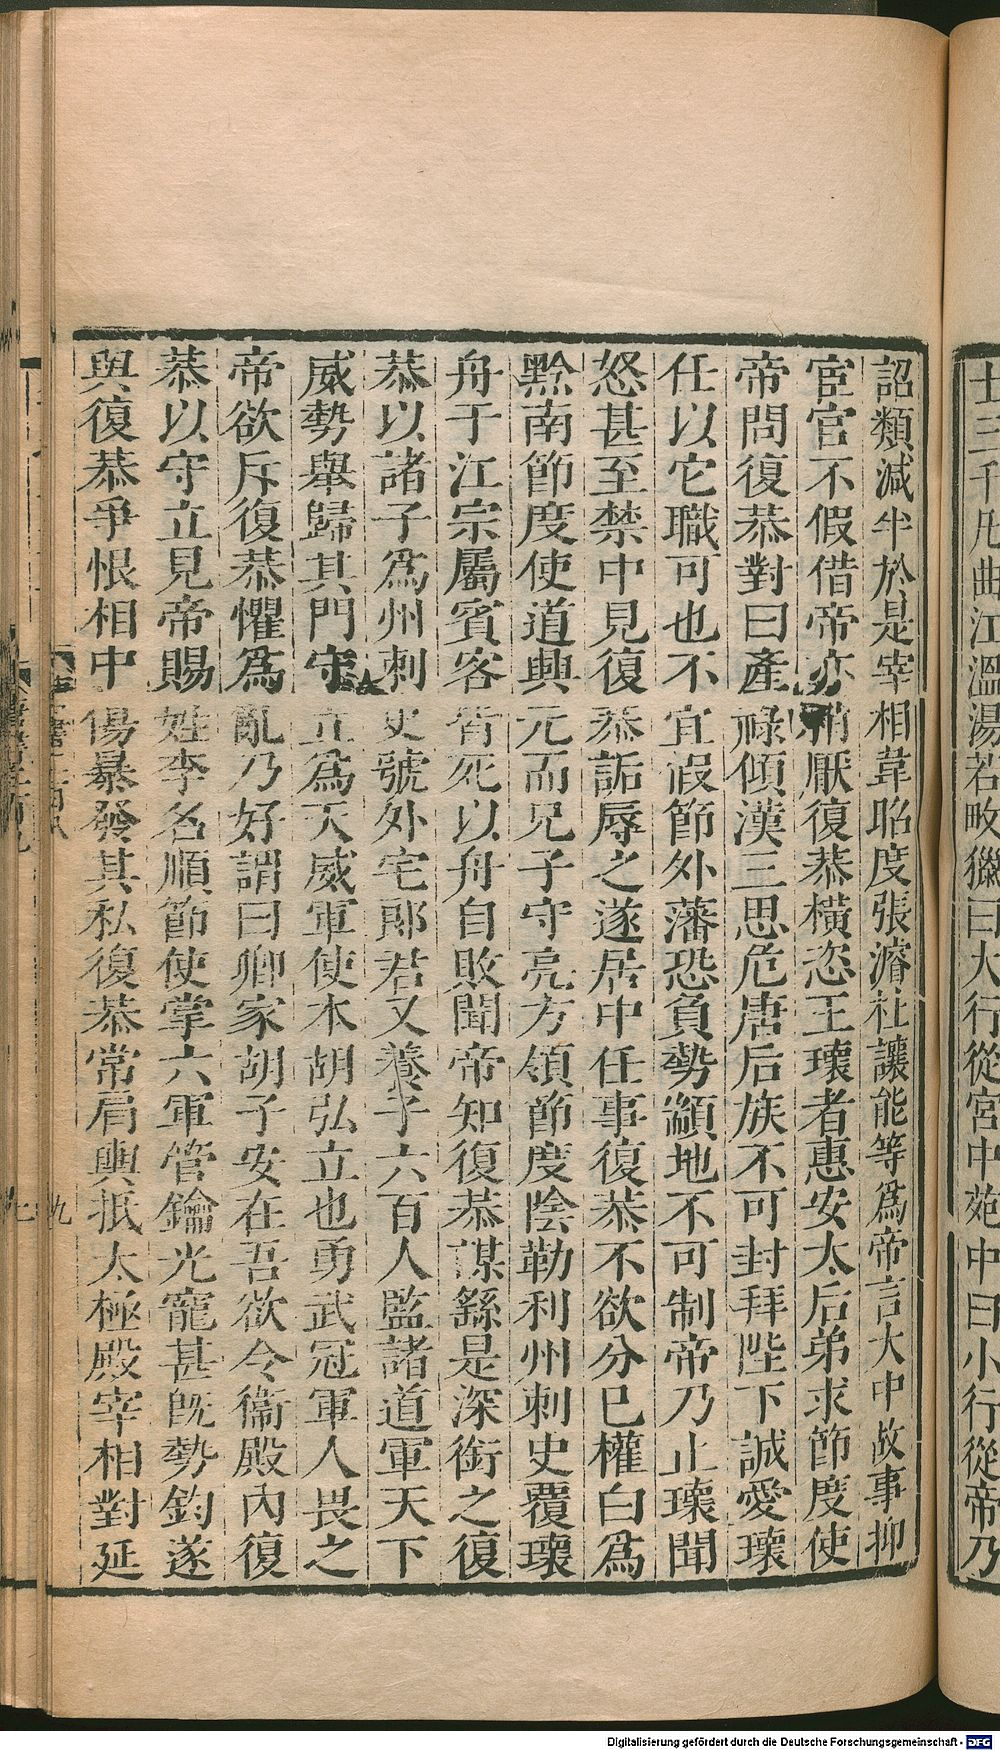 士三千凡曲江溫湯若畋獵曰大行從宮中苑中曰小行從帝乃
詔類減半於是宰相韋昭度張濬杜讓能等爲帝言大中故事抑
宦官不假借帝亦稍厭復恭橫恣王瓌者惠安太后弟求節度使
帝問復恭對曰產祿傾漢三思危唐后族不可封拜陛下誠愛瓌
任以它職可也不宜假節外藩恐負勢顓地不可制帝乃止瓌聞
怒甚至禁中見復恭詬辱之遂居中任事復恭不欲分已權白爲
黔南節度使道興元而兄子守亮方領節度陰勒利州刺史覆瓌
舟于江宗屬賓客皆死以舟自敗聞帝知復恭謀繇是深銜之復
恭以諸子爲州刺史號外宅郎君又養子六百人監諸道軍天下
威勢舉歸其門守立爲天威軍使本胡弘立也勇武冠軍人畏之
帝欲斥復恭懼爲亂乃好謂曰卿家胡子安在吾欲令衞殿內復
恭以守立見帝賜姓李名順節使掌六軍管鑰光寵甚旣勢鈞遂
與復恭爭恨相中傷暴發其私復恭常肩輿抵太極殿宰相對延
九
Digitalisierung gefördert durch die Deutsche Forschungsgemeinschaft - DFG